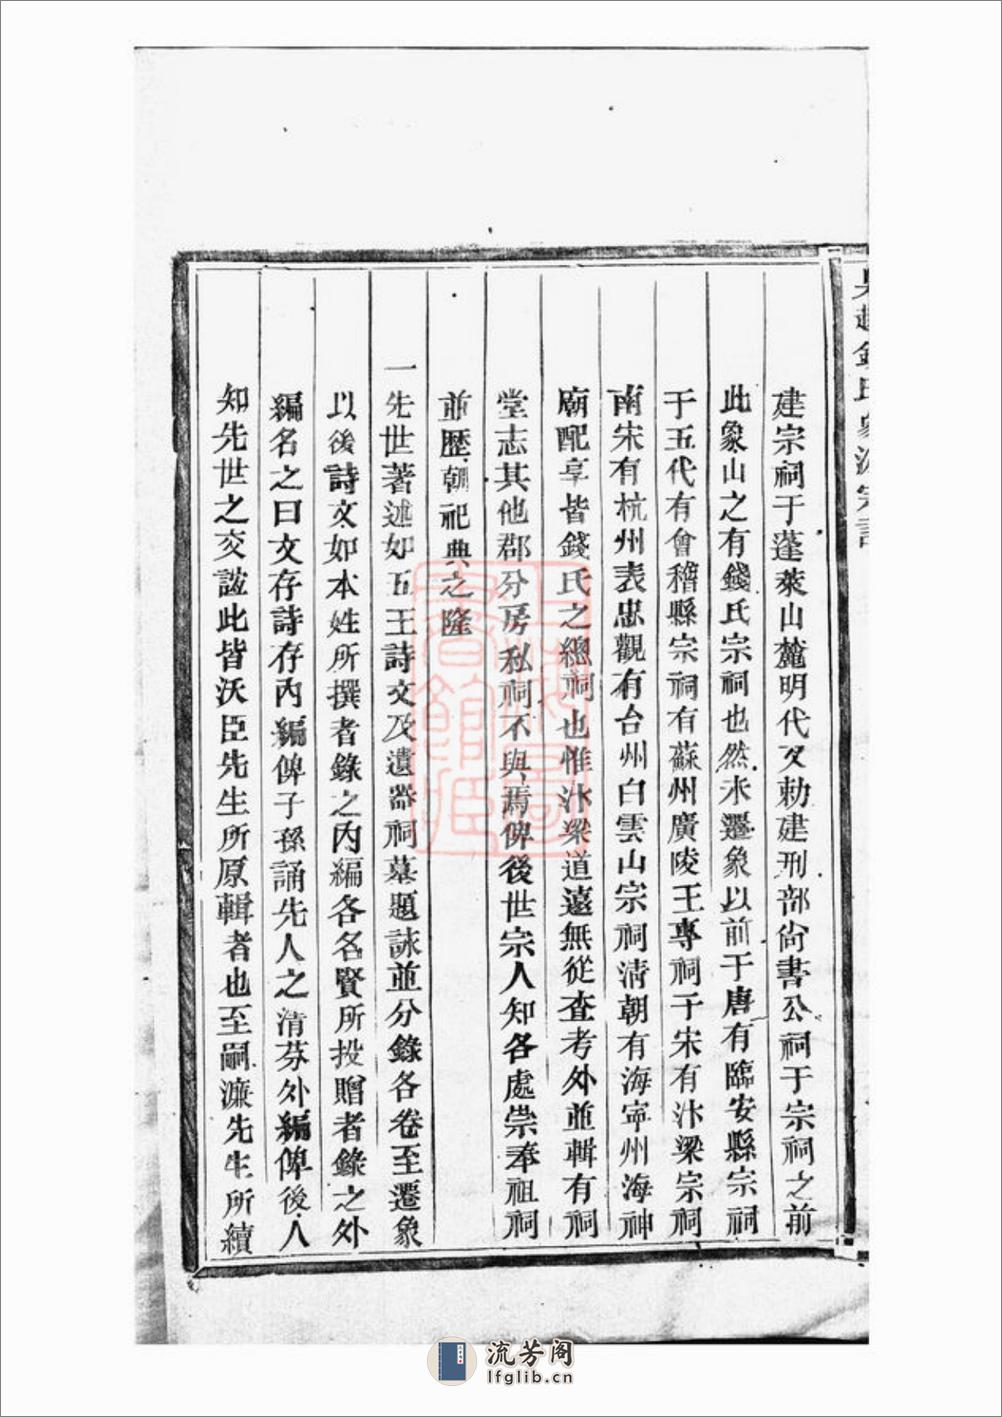 建宗祠于蓬萊山麓明代又勅建刑部尙書公祠于宗祠之前
此象山之有錢氏宗祠也然未遷象以前于唐有臨安縣宗祠
于五代有會稽縣宗祠有蘇州廣陵王專祠于宋有汴梁宗祠
南宋有杭州表忠觀有台州白雲山宗祠淸朝有海寧州海神
廟配享皆錢氏之總祠也惟汴梁道遠無從查考外並輯有祠
堂志其他郡分房私祠不與焉俾後世宗人知各處崇奉祖祠
並歷朝祀典之隆
一先世著述如五王詩文及遺器祠墓題詠並分錄各卷至遷象
以後詩文如本姓所撰者錄之內編各名賢所投贈者錄之外
編名之曰文存詩存內編俾子孫誦先人之淸芬外編俾後人
知先世之交誼此皆沃臣先生所原輯者也至嗣濂先生所續
流芳阁
lfglib.cn